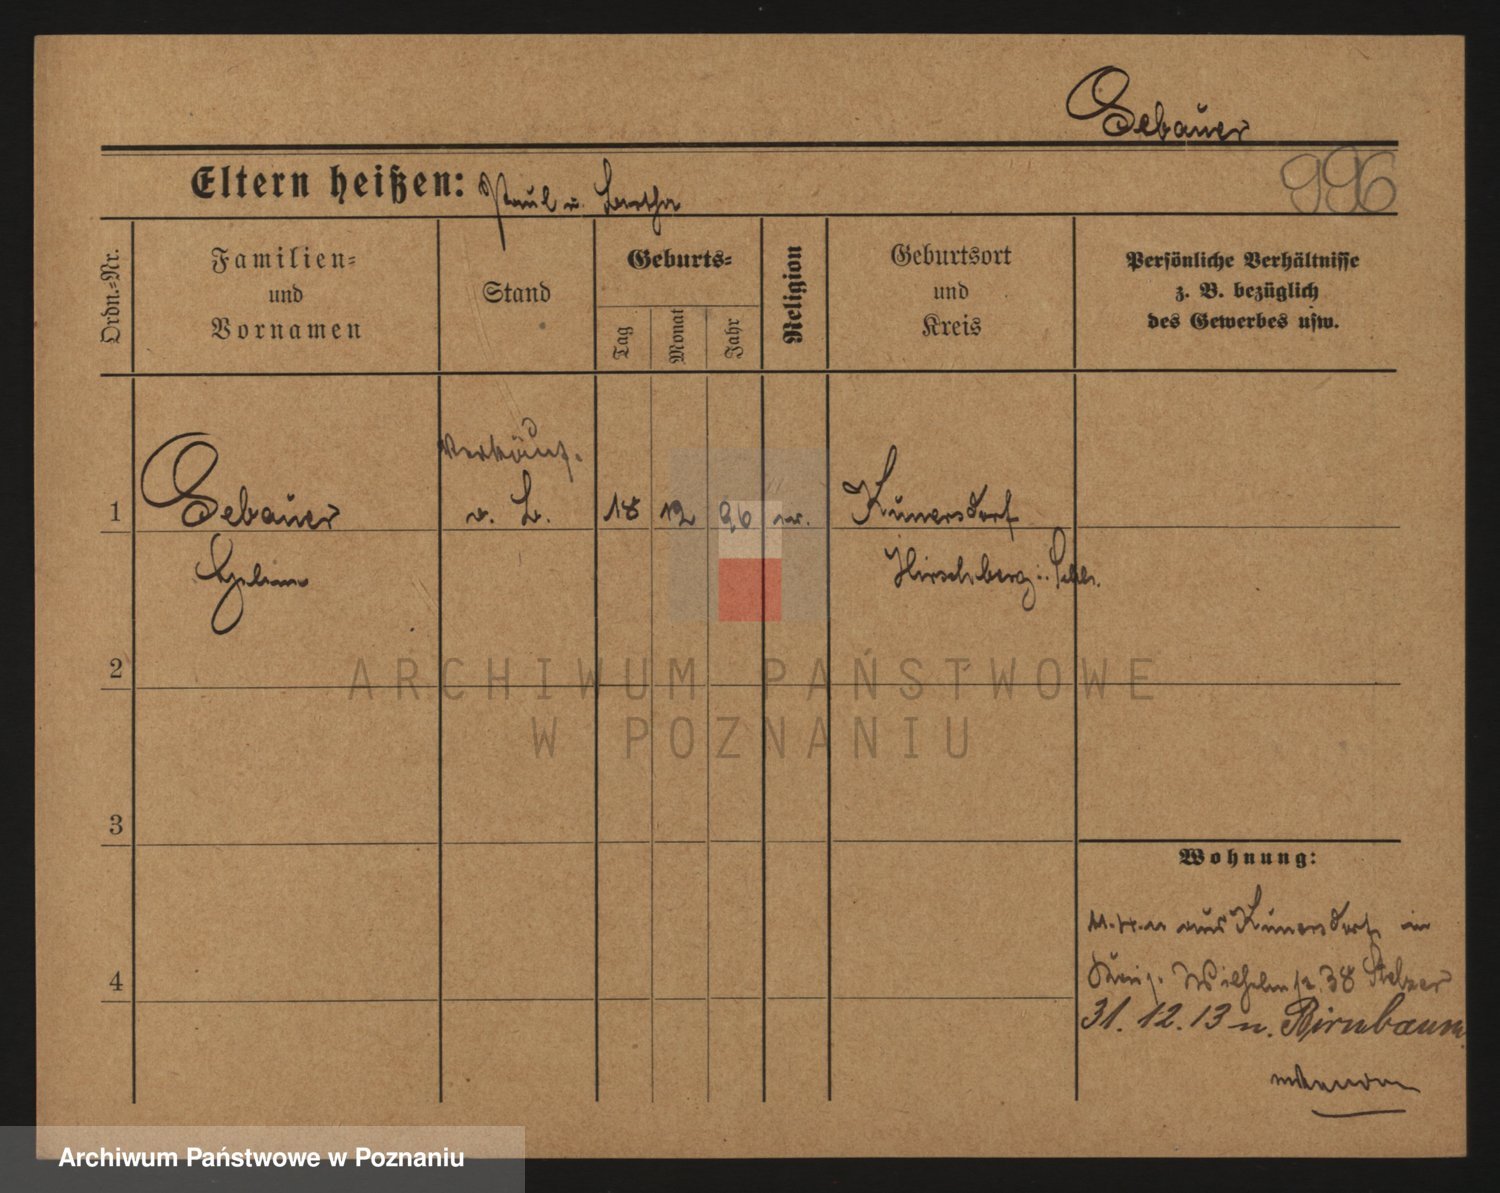 Gebauer
996
Eltern heißen: Paul u. Bertha
Ordn.-Nr.
Familien-
und
Vornamen
Stand
Geburts-
Tag
Monat
Jahr
Religion
Geburtsort
und
Kreis
Persönliche Verhältnisse
z. B. bezüglich
des Gewerbes usw.
Verkäuf.
1 Gebauer 18 12 96 Kunersdorf
Hirschberg i. Schl.
2
ARCHIWUM PAŃSTWOWE
W POZNANIU
3
Wohnung:
aus Kunersdorf in
Wilhelmstr. 38 Stelzer
4
31. 12. 13 n. Birnbaum
Archiwum Państwowe w Poznaniu